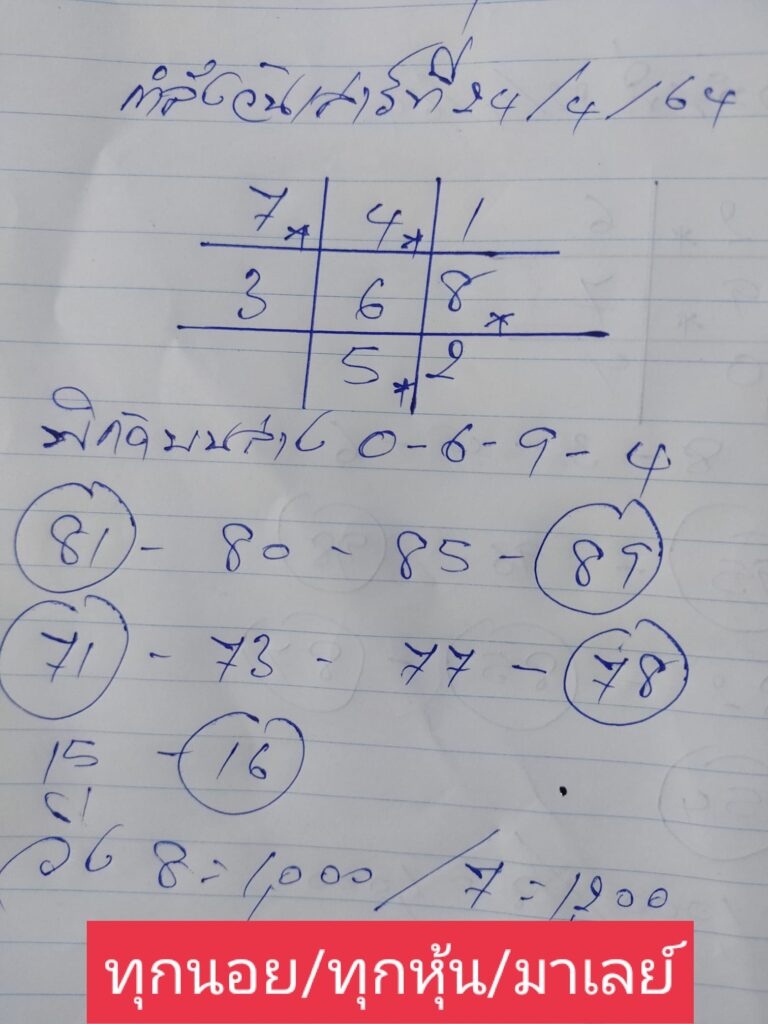 กำลังวันเสาร์ที่ 24/4/64
7* 4* 1
3 6 8*
5* 2
พิกัดบนล่าง 0-6-9-4
81 - 80 - 85 - 89
71 - 73 - 77 - 78
15 - 16
61
วิ่ง 8=1,000 / 7=1,200
ทุกนอย/ทุกหุ้น/มาเลย์